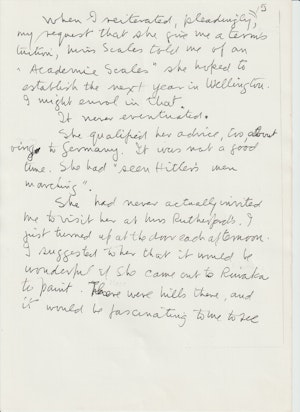 15
When I reiterated, pleadingly,
my request that she give me a term's
tuition, Miss Scales told me of an
"Academie Scales" she hoped to
establish the next year in Wellington.
I might enrol in that.
It never eventuated.
She qualified her advice, too, about
going to Germany. "It was not a good
time. She had "seen Hitler's men
marching".
She had never actually invited
me to visit her at Mrs Rutherford's. I
just turned up at the door each afternoon.
I suggested to her that it would be
wonderful if she came out to
to paint. There were hills there, and
it would be fascinating to me to see